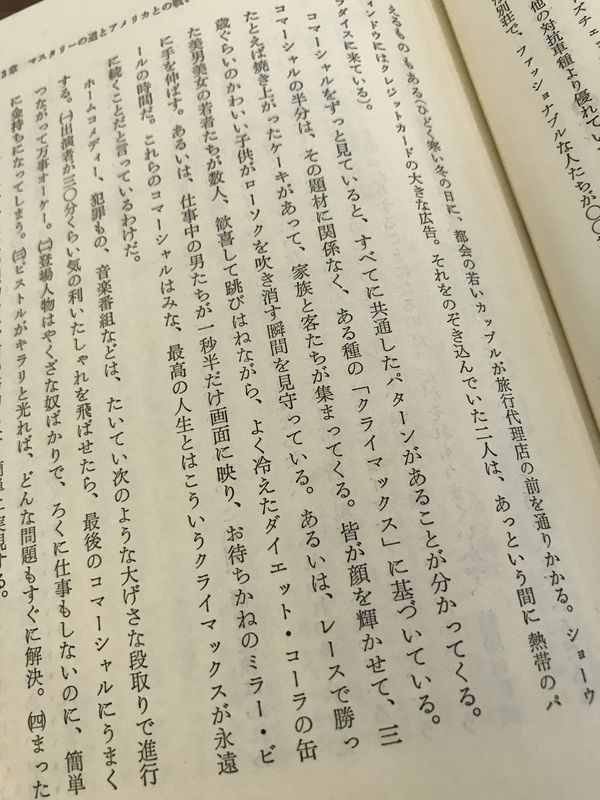 ズチェ
他の対抗車種より優れてい
別荘で、ファッショナブルな人たちが〇〇
3章 マスタリーの道とアメリカとの戦い
えるものもある(ひどく寒い冬の日に、都会の若いカップルが旅行代理店の前を通りかかる。ショーウ
ィンドウにはクレジットカードの大きな広告。それをのぞき込んでいた二人は、あっという間に 熱帯のパ
ラダイスに来ている)。
コマーシャルをずっと見ていると、すべてに共通したパターンがあることが分かってくる。
コマーシャルの半分は、その題材に関係なく、ある種の「クライマックス」に基づいている。
たとえば焼き上がったケーキがあって、家族と客たちが集まってくる。皆が顔を輝かせて、三
歳ぐらいのかわいい子供がローソクを吹き消す瞬間を見守っている。あるいは、レースで勝っ
た美男美女の若者たちが数人、歓喜して跳びはねながら、よく冷えたダイエット・コーラの缶
に手を伸ばす。あるいは、仕事中の男たちが一秒半だけ画面に映り、お待ちかねのミラー・ビ
ールの時間だ。これらのコマーシャルはみな、最高の人生とはこういうクライマックスが永遠
に続くことだと言っているわけだ。
ホームコメディー、犯罪もの、音楽番組などは、たいてい次のような大げさな段取りで進行
する。㈠出演者が三〇分くらい気の利いたしゃれを飛ばせたら、最後のコマーシャルにうまく
つながって万事オーケー。㈡登場人物はやくざな奴ばかりで、ろくに仕事もしないのに、簡単
に金持ちになってしまう。㈢ピストルがキラリと光れば、どんな問題もすぐに解決。㈣まった
簡単に実現する。